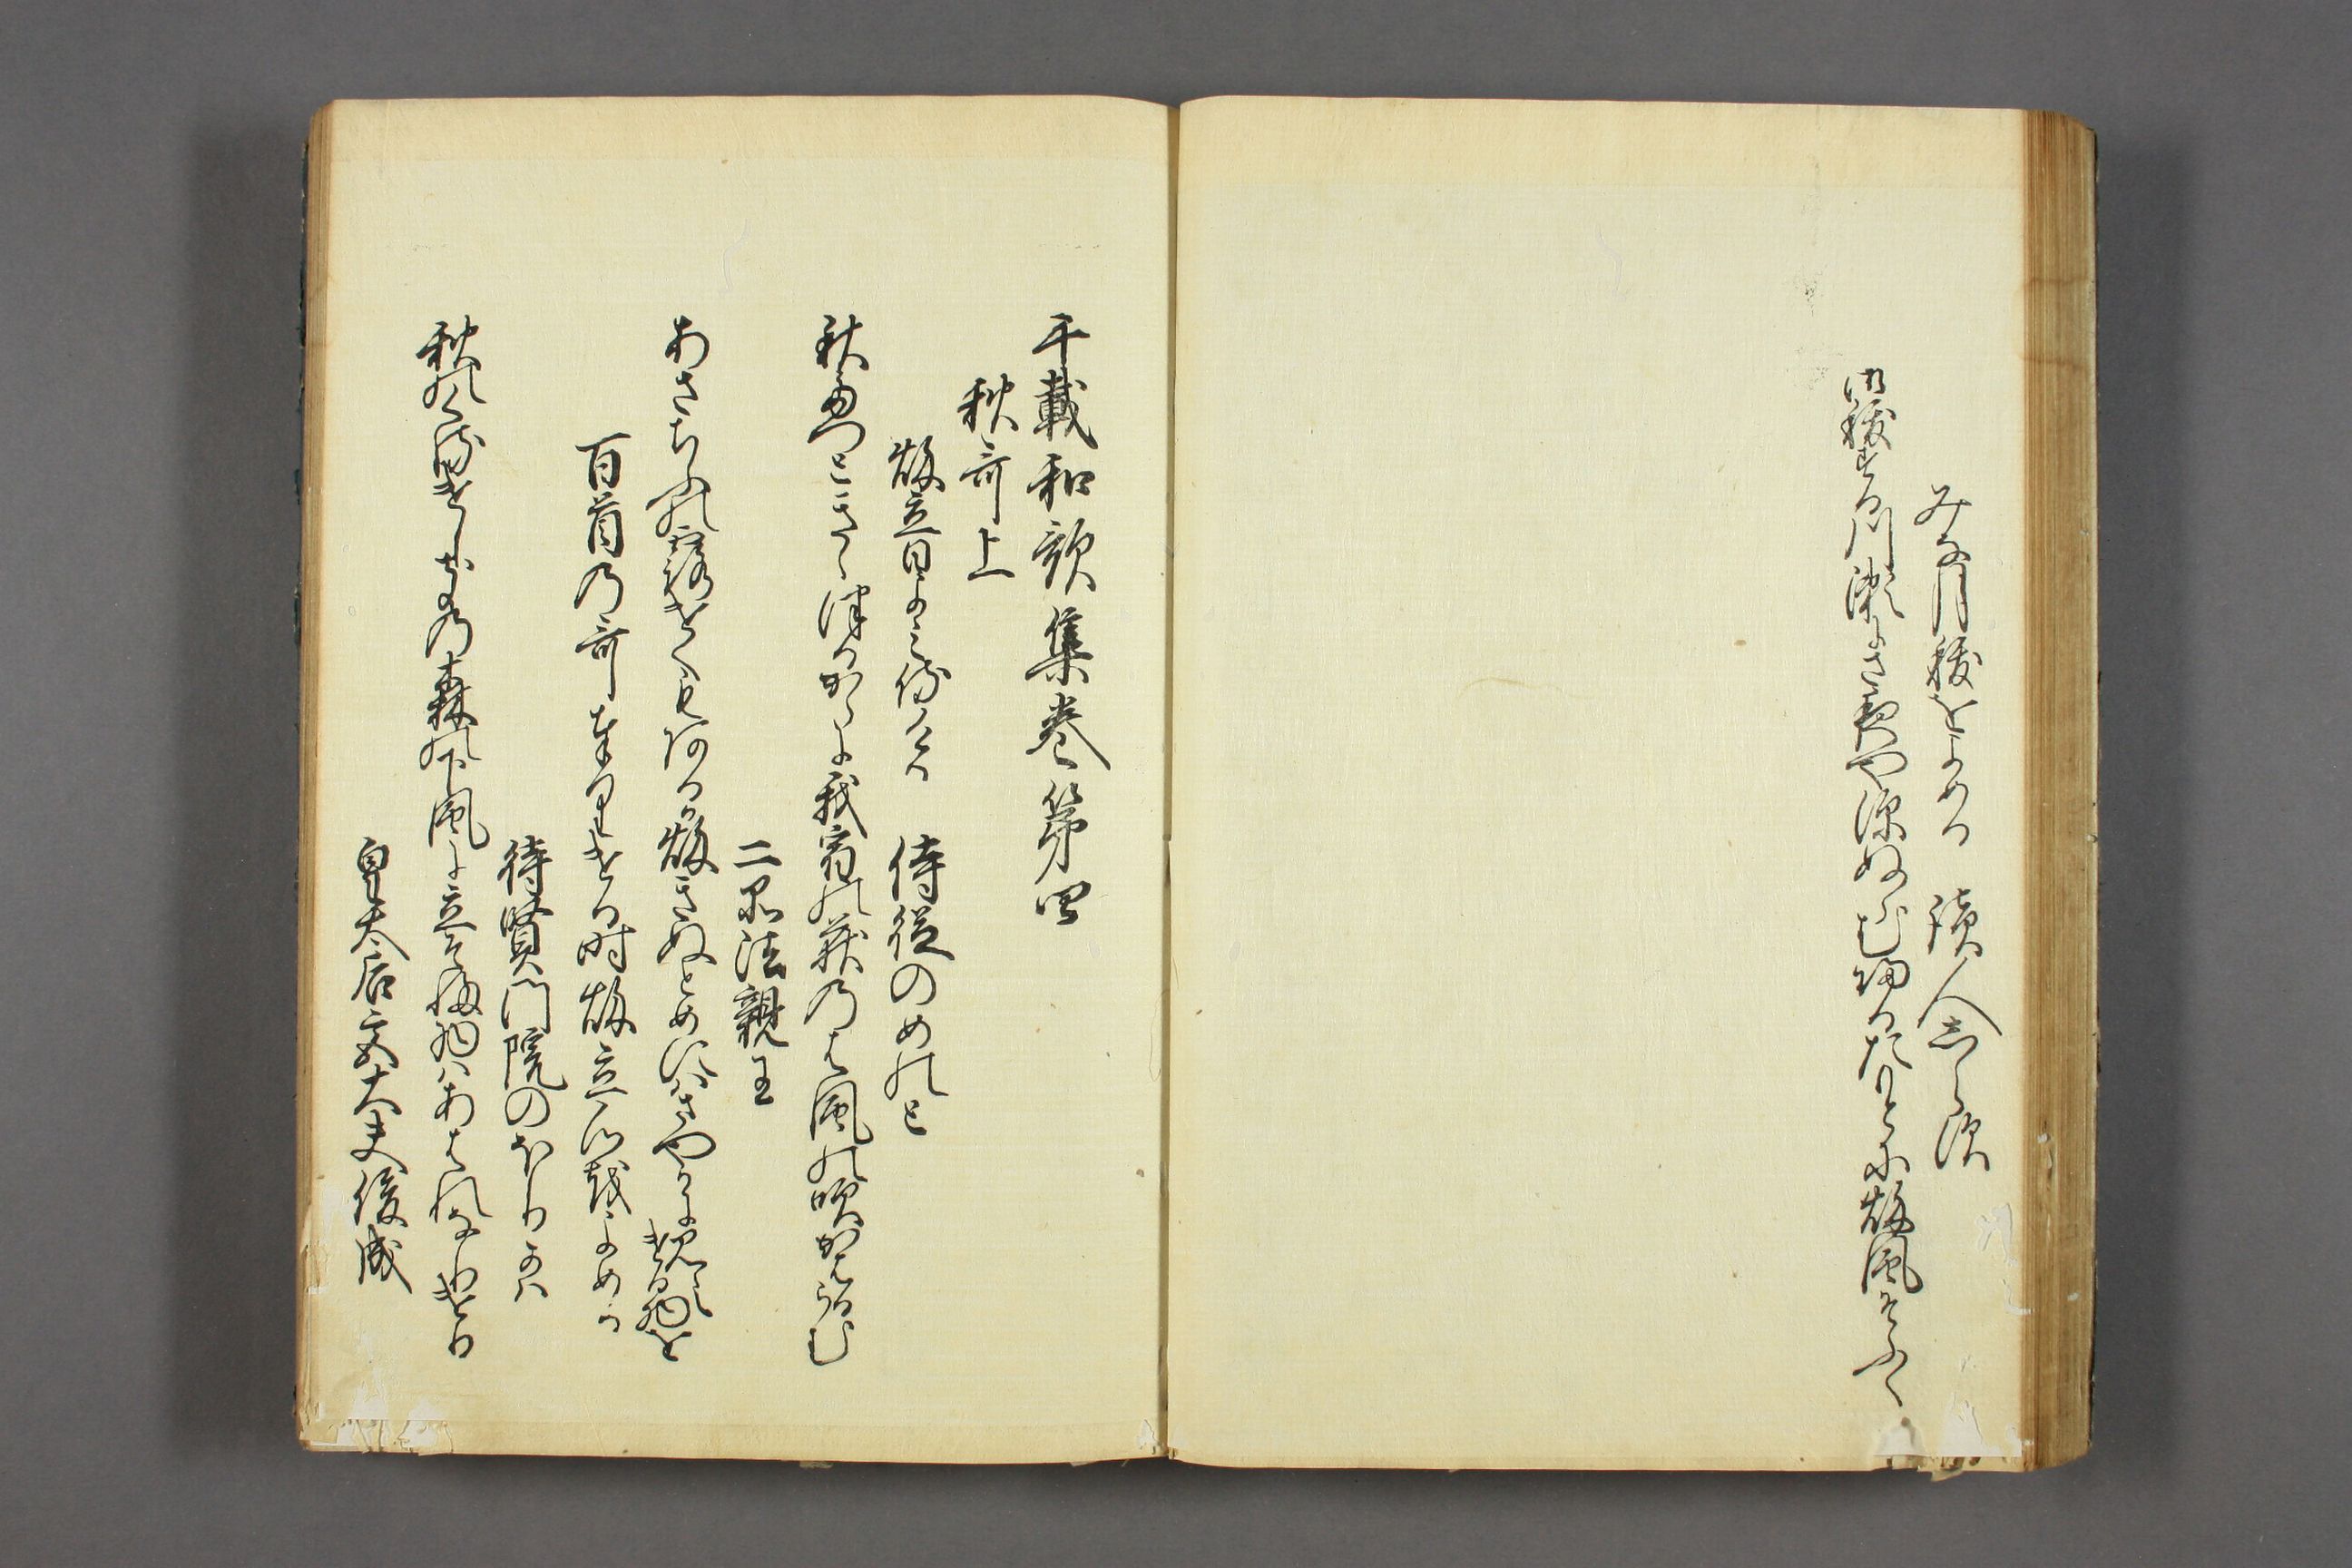 みな月祓をよめる　読人しらす
御祓する川瀬にさよや深ぬらむかへるたもとに秋風そふく
千載和歌集巻第四
秋哥上
秋立日よみ侍ける　侍従のめのと
秋たつときゝつるからに我宿の荻のは風の吹かはるらむ
二品法親王
あさちふの露けくもあるか秋きぬとめにはさやかに見えける物を
百首の哥奉りける時秋立心をよめる
待賢門院のほりかは
秋のくるけしきの森の下風に立そふ物はあはれなりけり
皇太后宮大夫俊成